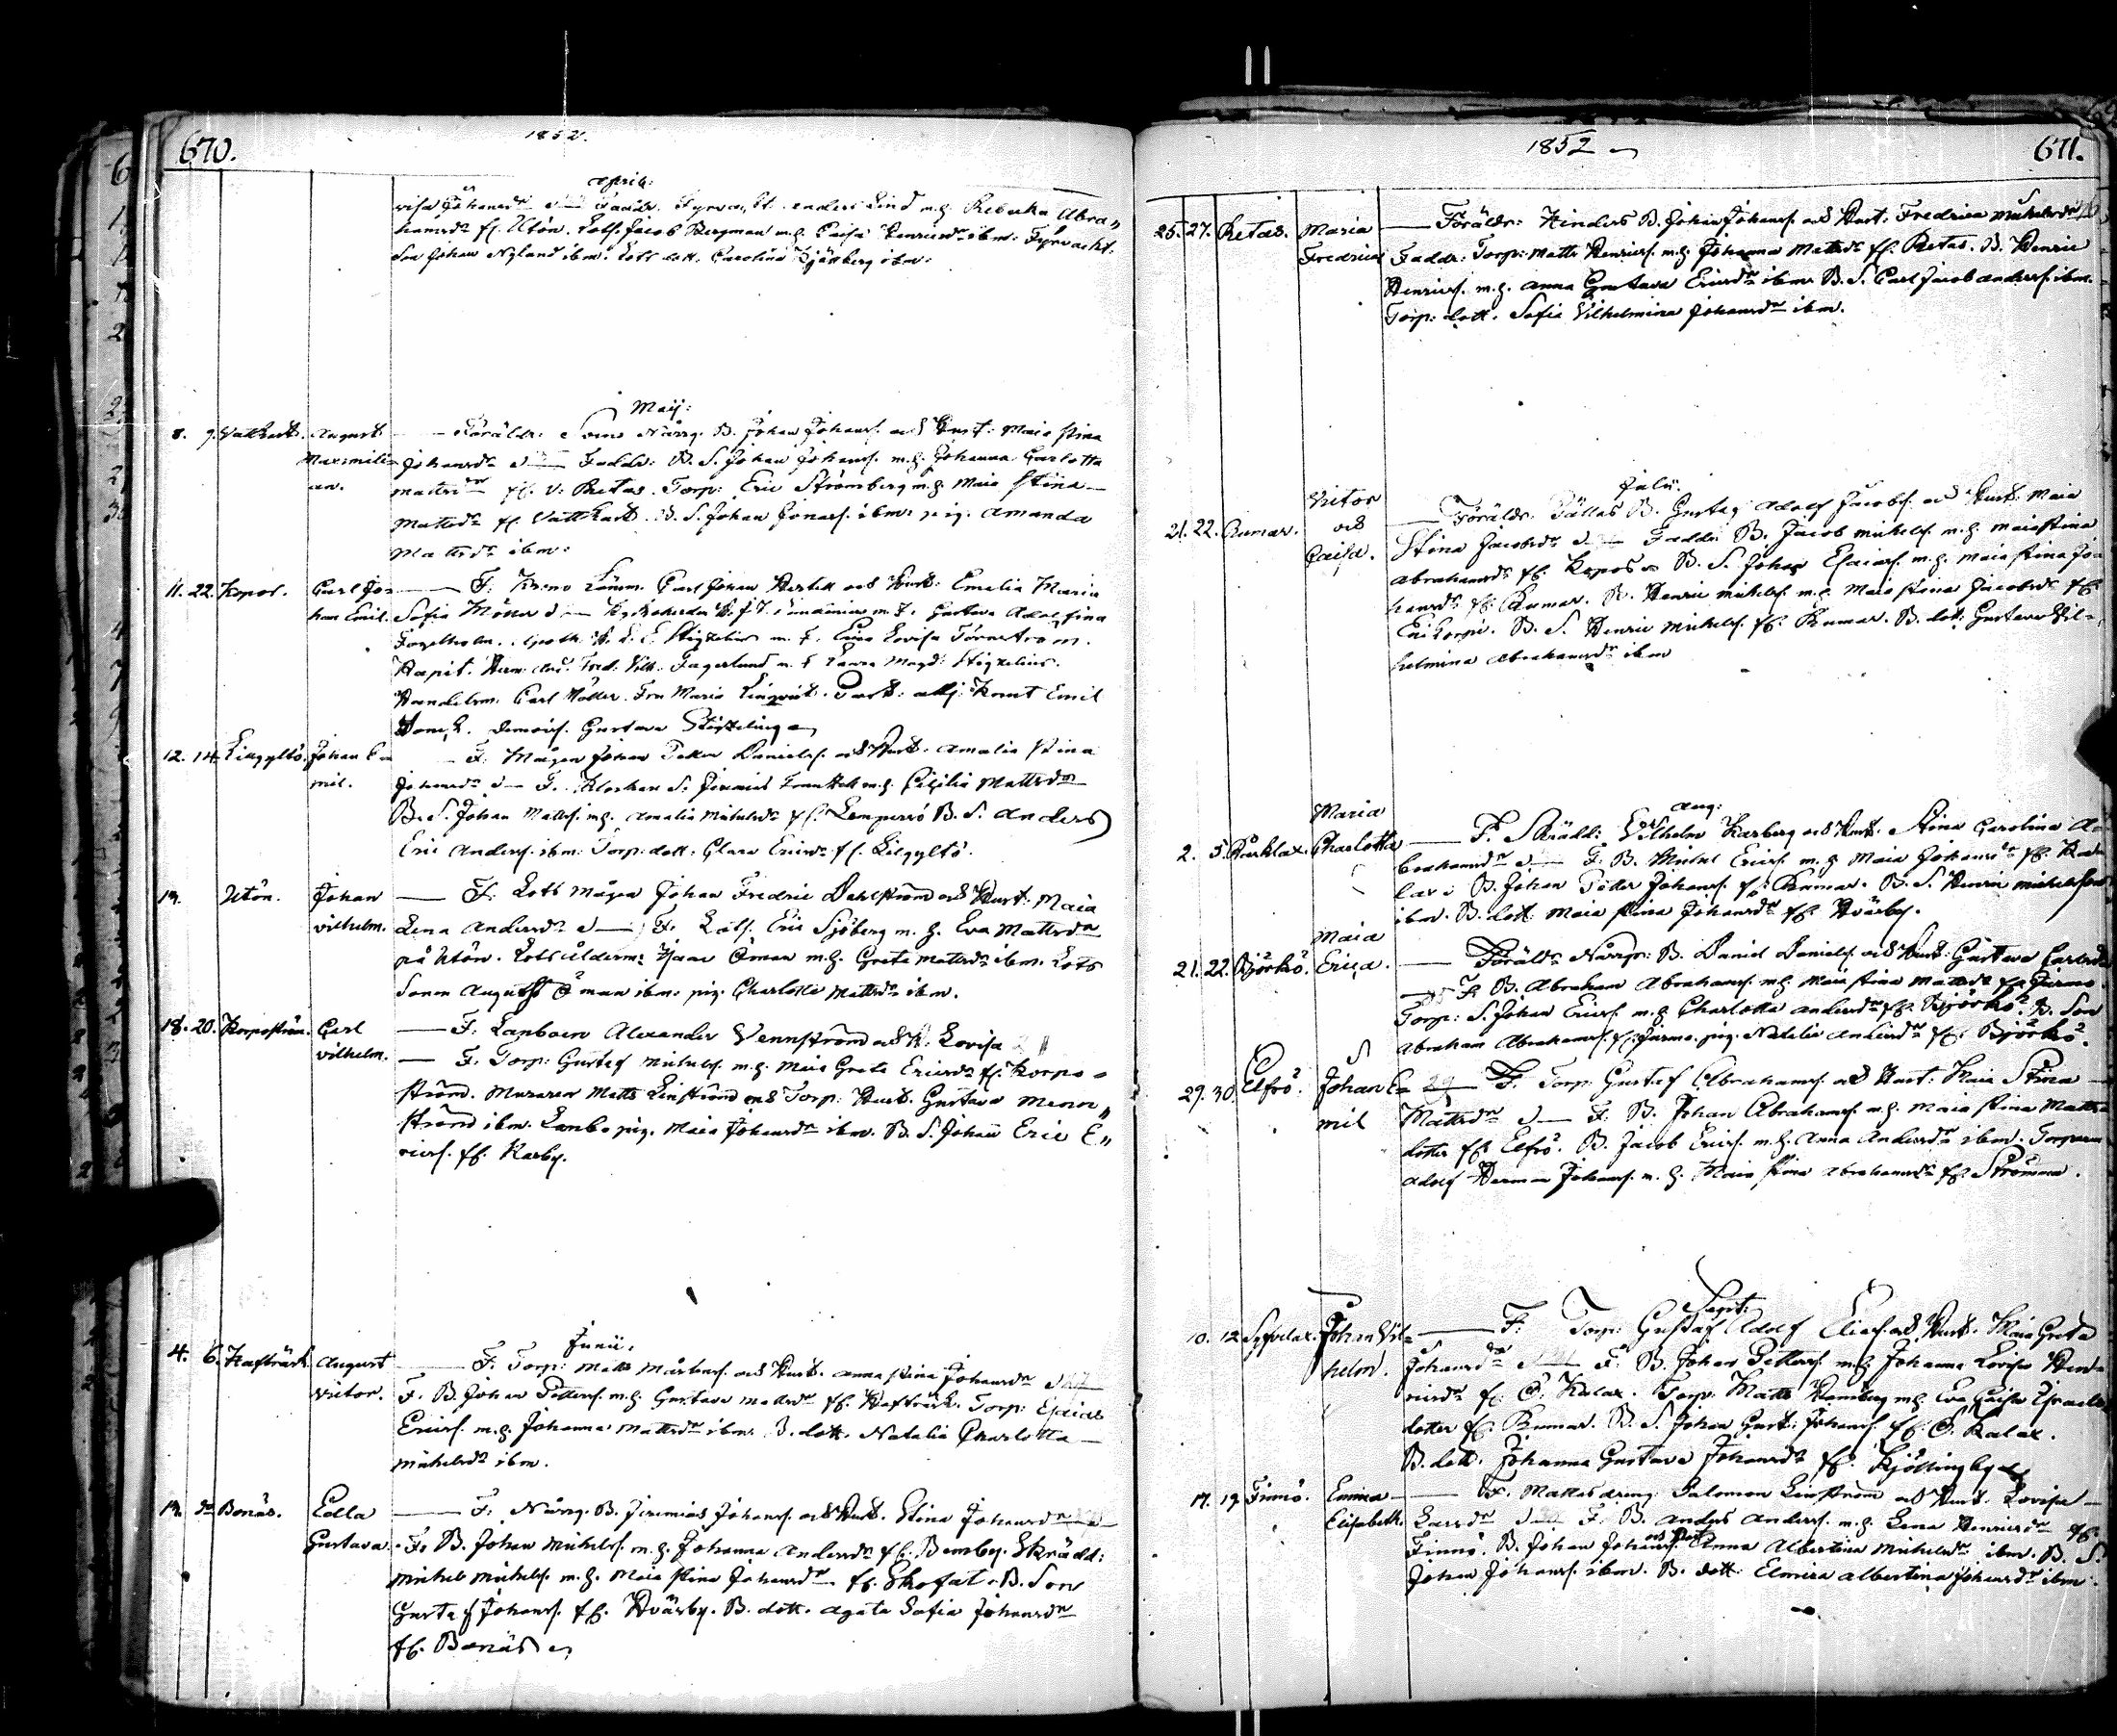 670.
1852.
April:
Johansdr Faddr. Fyrvackt. Anders Lind m.h. Rebecka Abra„
hamsdr fr. Utön. Lots Jacob Bergman m.h. Caisa Henricsdr ibm. Fyrvackt.
Son Johan Nylund ibm. Lots dott. Carolina Sjöberg ibm.
Maij:
8. 9. Vattkast. August Föräldr: Norrg. B. Johan Johans. och Hust: Maia Stina
Maximili- Johansdr Faddr: B. S. Johan Johans. m.h. Johanna Carlotta
an. Mattsdr fr. V: Retas. Torp: Eric Strömberg m.h. Maia Stina
Mattsdr fr. Vattkast. B. S. Johan Jonas. ibm. pig. Amanda
Mattsdr ibm.
11. 22. Korpo. Carl Jo- F: Carl Johan och Hust: Emelia Maria
han Emil. Sofia Möller Gustava Adolfina
Fogelholm. m. F. Lovisa Törnström.
Kapit. Herm: Fred. Vilh. Fagerlund m. F. Laura Magd: Stigzelius.
Handelsm. Carl Möller. Fru Maria Emil
Demois. Gustava Stigzelius
12. 14. Lilgyltö. Johan E- F. Mågen Johan Petter Daniels. och Hust. Amalia Stina
mil. Johansdr F. Klockar S. Jeremias m.h. Cicilia Mattsdr
B. S. Johan Matts. m.h. Amalia Michelsdr fr. Lempersö B. S. Anders
Eric Anders. ibm. Torp. dott. Clara Ericsdr fr. Lilgyltö.
Utön. Johan F. Lots Mågen Johan Fredric Dahlström och Hust: Maia
vilhelm. Lena Andersdr F. Lots. Eric Sjöberg m.h. Eva Mattsdr
på Utön. Lotsålderm: Isac Öman m.h. Greta Mattsdr ibm. Lots
Sonen August Öman ibm. pig. Charlotta Mattsdr ibm.
18. 20. Korpoström. Carl F. Landboen Alexander Vennström och H. Lovisa
vilhelm. F. Torp: Gustaf Michels. m.h. Maia Greta Ericsdr fr. Korpo-
ström. Muraren Matts Linström och Torp: Hust. Gustava Menn„
ström ibm. Landb. pig. Maia Johansdr ibm. B. S. Johan Eric E„
rics. fr. Karby.
Junii.
4. 6. Kafträsk August F. Torp: Matts Mårtens. och Hust. Anna Stina Johansdr
Victor. F. B. Johan Petters. m.h. Gustava Mattsdr fr. Kafträsk. Torp: Esaias
Erics. m.h. Johanna Mattsdr ibm. B. dott. Natalia Charlotta
Michelsdr ibm.
Bonäs. Edla F. Norrg. B. Jeremias Johans. och Hust. Stina Johansdr
Gustava. F. B. Johan Michels. m.h. Johanna Andersdr fr. Bemby. Skrädd:
Michel Michels. m.h. Maia Stina Johansdr fr. Skofat. B. Son
Gustaf Johans. fr. Hvärby. B. dott. Agata Sofia Johansdr
fr. Bonäs
1852
671.
25. 27. Retas. Maria Föräldr: Hinders B. Johan Johans. och Hust: Fredrica Michelsdr
Fredrica Faddr: Torp: Matts Henrics. m.h. Johanna Mattsdr fr. Retas. B. Henric
Henrics. m.h. Anna Gustava Ericsdr ibm. B. S. Carl Jacob Anders. ibm.
Torp: dott. Sofia Vilhelmina Johansdr ibm.
Julii.
21. 22. Rumar. Victor Föräldr. Pällas B. Gustaf Adolf Jacobs. och Hust. Maia
och Stina Jacobsdr Faddr. B. Jacob Michels. m.h. Maia Stina
Caisa. Abrahamsdr fr. Korpo B. S. Johan Esaias. m.h. Maia Stina Jo-
hansdr fr. Rumar. B. Henric Michels. m.h. Maia Stina Jacobsdr fr.
B. S. Henric Michels. fr. Rumar. B. dott. Gustava Vil-
helmina Abrahamsdr ibm
Aug:
2. 5. Maria F. Skrädd: Vilhelm Karberg och Hust. Stina Carolina A-
Charlotta brahamsdr F. B. Michel Erics. m.h. Maia Johansdr fr.
B. Johan Peder Johans. fr. Rumar. B. S. Henric Michelsson
ibm. B. dott. Maia Stina Johansdr fr. Hvärby.
21. 22. Björkö. Maia Erica. Föräldr Norrg: B. Daniel Daniels. och Hust: Gustava Carlsdr
F. B. Abraham Abrahams. m.h. Maia Stina Mattsdr fr. Jurmo.
Torp: S. Johan Erics. m.h. Charlotta Andersdr fr. Björkö. B. Son
Abraham Abrahams. fr. Jurmo. pig. Natalia Andersdr fr. Björkö.
29. 30. Elfsö. Johan E- F. Torp: Gustaf Abrahams. och Hust: Maia Stina
mil Mattsdr F. B. Johan Abrahams. m.h. Maia Stina Matts-
dotter fr. Elfsö. B. Jacob Erics. m.h. Anna Andersdr ibm. Torparen
Adolf Herman Johans. m.h. Maia Stina Abrahamsdr fr. Strömma.
Sept:
10. 12. Syfvelax. Johan Vil- F. Torp: Gustaf Adolf Elias. och Hust. Maia Greta
helm. Johansdr F. B. Johan Petters. m.h. Johanna Lovisa Hen-
ricsdr fr. Ö. Kalax. Torp. Matts m.h. Eva Caisa Israels
dotter fr. Rumar. B. S. Johan Gust: Johans. fr. Ö. Kalax.
B. dott. Johanna Gustava Johansdr fr. Kjöttingby
17. 19. Finnö. Emma F. Mattas dräng Salomon Linström och Hust. Lovisa
Elisabeth. Larsdr F. B. Anders Anders. m.h. Lena Henricsdr fr.
Finnö. B. Johan Johans. och Hust Anna Albertina Michelsdr ibm. B. S.
Johan Johans. ibm. B. dott. Elmira Albertina Johansdr ibm.